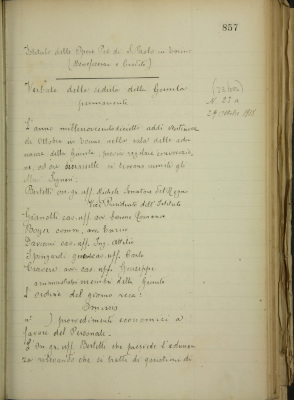 857
Istituto delle Opere Pie di S. Paolo in Torino
(Beneficenza e Credito)
Verbale della seduta della Giunta
permanente.
N. 27
29 ottobre 1918
L'anno millenovecentodiciotto addì ventinove
di Ottobre in Torino nella sala delle adu-
nanze della Giunta, previo regolare
ore si trovano riuniti gli
Signori:
Bertetti gr. uff. Michele Senatore del Regno
Vice Presidente dell'Istituto
Gianolli cav. uff. avv. Romano
Boyer comm. avv.
Pavani cav. uff. Ing. Attilio
cav. uff. Carlo
Craveri avv. cav. uff. Giuseppe
membri della Giunta
L'ordine del giorno reca:
n° ) provvedimenti economici a
favore del Personale.
L'On. gr. uff. Bertetti che presiede l'adunan
za che si tratta di questione di